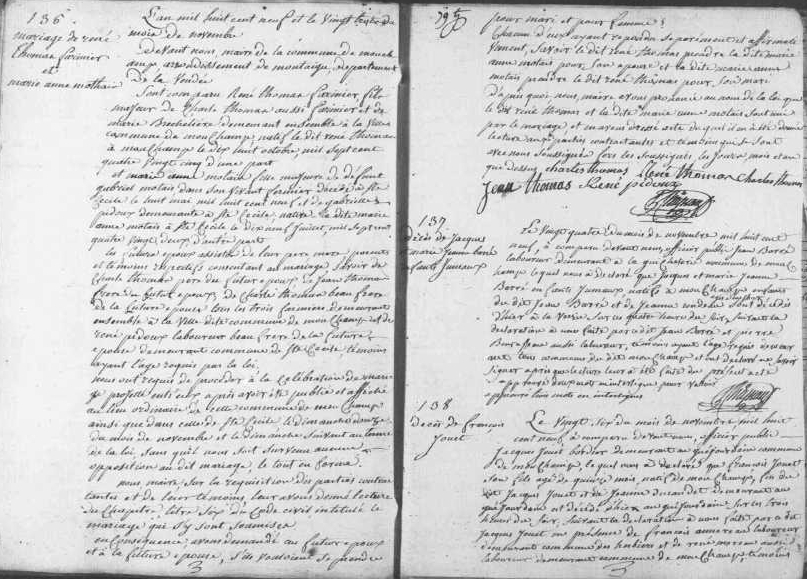 136
mariage de rené
Thomas farinier
et
marie anne mathai
L'an mil huit cent neuf et le vingt
mois de novembre
devant nous, maire de la commune de mouch
amp arrondissement de montaigu, departement
de la Vendée
Sont comparu René thomas farinier fils
majeur de Charle thomas aussi farinier et de
marie Brechelière demeurant ensemble à la Ville
commune de mouchamp natif le dit rené thomas
à mouchamp le dix huit octobre mil sept cent
quatre vingt cinq d'une part
et marie anne molais fille majeure de défunt
gabriel molais dans son vivant farinier décédé à Ste
Cécile le huit mai mil huit cent neuf et de gabrielle
pidoux demeurante à Ste Cecile, native la dite marie
anne molais à Ste Cecile le dix neuf juillet mil sept cent
quatre vingt deux d'autre part
les futurs epoux assistés de leur pere mere parents
et temoins consentant au mariage Savoir de
Charle thomas pere du futur epoux de Jean thomas
frere du futur epoux, de Charle thomas beau frere
de la future epouse tous les trois farinier demeurant
ensemble à la Ville dite commune de mouchamp et de
rené pidoux laboureur beau frere de la future
epouse demeurant commune de Ste Cecile témoins
ayant l'age requis par la loi
nous ont requis de proceder à la celebration du maria
ge projetté entr'eux après avoir été publié et affiché
au lieu ordinaire de cette commune de mouchamp
ainsi que dans celle de Ste Cecile le dimanche douze
du mois de novembre et le dimanche suivant au terme
de la loi, sans qu'il nous soit survenu aucune
opposition au dit mariage, le tout en forme
nous maire, sur la requisition des parties contrac
tantes et de leur temoins leur avons donné lecture
du Chapitre, titre six du Code civil intitulé le
mariage qui s'y sont soumises
en consequence avons demandé au futur epoux
et à la future epouse, s'ils vouloient se prendre
pour mari et pour femme ;
Chacun d'eux ayant repondu separement et affirmati
vement, savoir le dit rené thomas prendre la dite marie
anne molais pour son epouse et la dite marie anne
molais prendre le dit rené thomas pour son mari
Après quoi nous, maire avons prononcé au nom de la loi que
le dit rené thomas et la dite marie anne molais sont unis
par le mariage et en avons dressé acte de quel il en a été donné
lecture aux parties contractantes et temoins qui sont
avec nous soussignés les jours mois et an
que dessus charles thomas René Thomas Charles thomas
Jean thomas René pidoux
137
décès de Jacques
marie Jeanne boré
enfants Jumeaux
Le vingt quatre du mois de novembre mil huit cent
neuf, à comparu devant nous, officier public Jean Borré
laboureur demeurant à la commune de mou
champ lequel nous a déclaré que Jacques et marie Jeanne
Borré enfants Jumeaux natifs à mouchamp enfants
du dit Jean Borré et de Jeanne sont décédés
d'hier à la sur les quatre heures du soir, suivant la
declaration à nous faite par le dit Jean Borré et pierre
aussi laboureur, témoins ayant l'age requis demeur
ant commune du dit mouchamp et ont déclaré ne savoir
signer après que lecture leur a été faite du present acte
approuvé deux mots interligne pour valoir
138
décès de françois
Jouet
Le Vingt Six du mois de novembre mil huit
cent neuf, à comparu devant nous, officier public
Jacques Jouet bordier demeurant au commune
de mouchamp, lequel nous a déclaré que françois Jouet
son fils agé de quinze mois, natif de mouchamp, fils du
dit Jacques Jouet et de Jeanne demeurant au
est décédé d'hier au sur les trois
heures du soir, suivant la declaration à nous faite par le dit
Jacques Jouet en presence de francois laboureur
demeurant commune des herbiers et de rené moreau aussi
laboureur demeurant commune de mouchamp, témoins